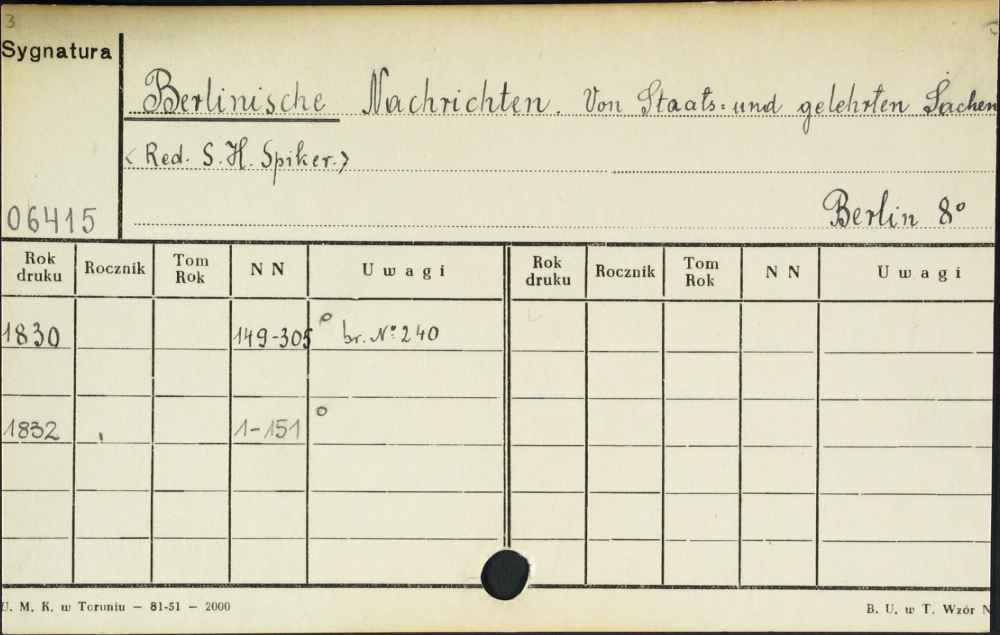 3
Sygnatura
Berlinische Nachrichten. Von Staats= und gelehrten Sachen
<Red. S. H. Spiker.>
06415
Berlin 8°
Rok druku Rocznik Tom Rok N N Uwagi Rok druku Rocznik Tom Rok N N Uwagi
1830 149-305 ° br. №: 240
1832 1-151 °
U. M. K. w Toruniu — 81-51 — 2000
B. U. w T. Wzór N